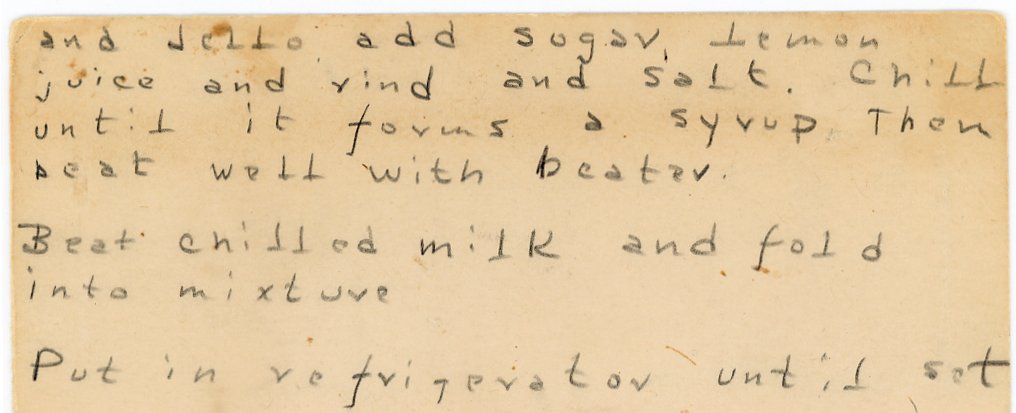 and Jello add sugar, Lemon
juice and rind and salt. Chill
until it forms a syrup. Then
beat well with beater.
Beat chilled milk and fold
into mixture
Put in refrigerator until set